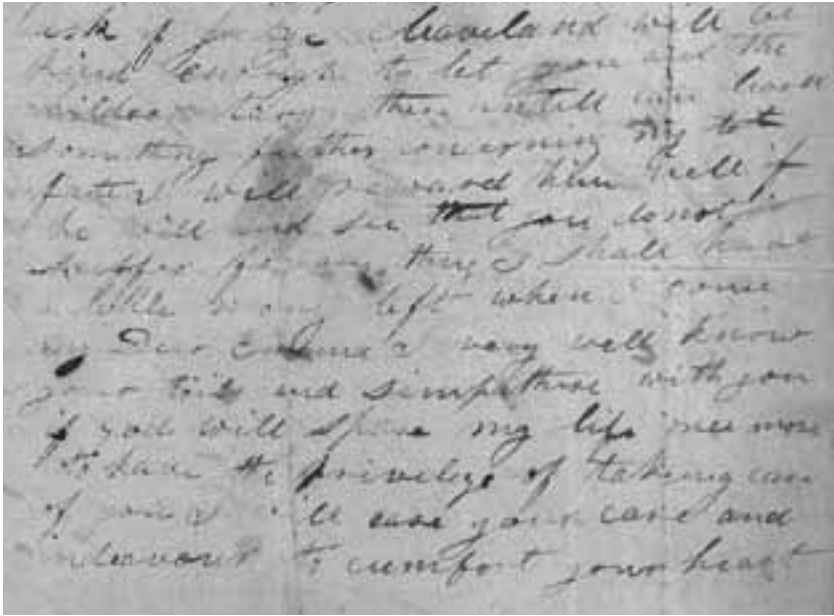 ask if Judge Cleaveland will be
kind enough to let you and the
children tarry there untill can learn
something further concerning my lot
fate I will reward him well if
he will and see that you do not
suffer for any thing I shall have
a little mony left when I come
my Dear Emma I very well know
your toils and simpathise with you
if God will spare my life once more
to have the privelege of takeing care
of you I will ease your care and
indeavour to cumfort your heart